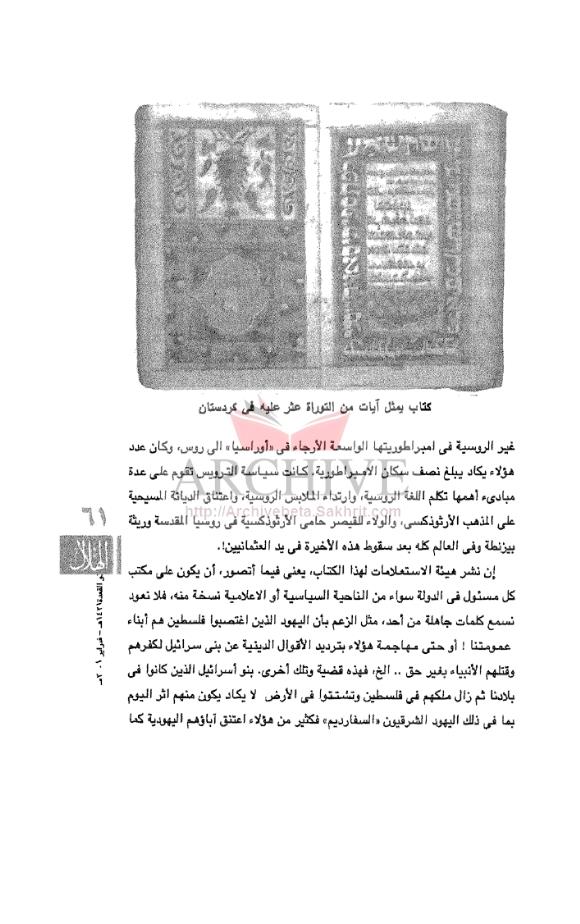 كتاب يمثل آيات من التوراة عثر عليه فى كردستان
غير الروسية فى امبراطوريتها الواسعة الأرجاء فى «أوراسيا» الى روس، وكان عدد
هؤلاء يكاد يبلغ نصف سكان الامبراطورية. كانت سياسة الترويس تقوم على عدة
مبادىء أهمها تكلم اللغة الروسية، وارتداء الملابس الروسية، واعتناق الديانة المسيحية
على المذهب الأرثوذكسى، والولاء للقيصر حامى الأرثوذكسية فى روسيا المقدسة وريثة
بيزنطة وفى العالم كله بعد سقوط هذه الأخيرة فى يد العثمانيين!.
إن نشر هيئة الاستعلامات لهذا الكتاب، يعنى فيما أتصور، أن يكون على مكتب
كل مسئول فى الدولة سواء من الناحية السياسية أو الاعلامية نسخة منه، فلا نعود
نسمع كلمات جاهلة من أحد، مثل الزعم بأن اليهود الذين اغتصبوا فلسطين هم أبناء
عمومتنا ! أو حتى مهاجمة هؤلاء بترديد الأقوال الدينية عن بنى سرائيل لكفرهم
وقتلهم الأنبياء بغير حق .. الخ، فهذه قضية وتلك أخرى. بنو أسرائيل الذين كانوا فى
بلادنا ثم زال ملكهم فى فلسطين وتشتتوا فى الأرض لا يكاد يكون منهم اثر اليوم
بما فى ذلك اليهود الشرقيون «السفارديم» فكثير من هؤلاء اعتنق آباؤهم اليهودية كما
ARCHIVE
http://Archivebeta.Sakhrit.com
٦١
الهلال
القعدة ١٤٢١هـ - فبراير ٢٠٠١مـ